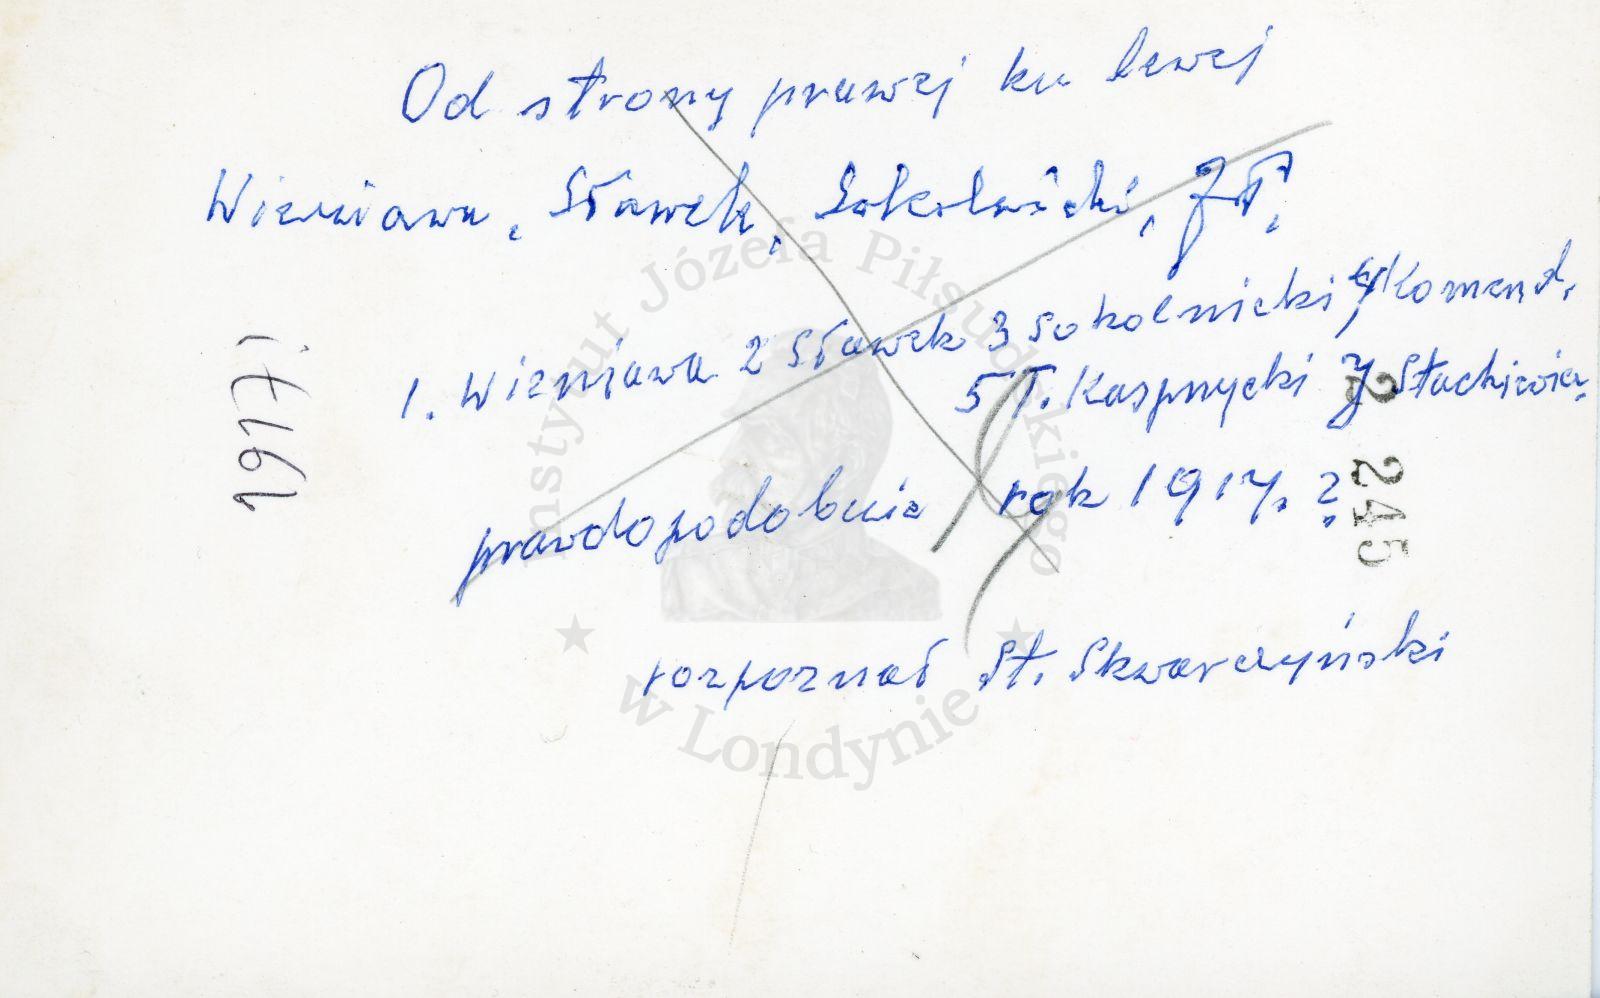 Od strony prawej ku lewej
Wieniawa, Sławek, Sokolnicki, J.P.
1. Wieniawa 2 Sławek 3 Sokolnicki 4/Komend.
5 T. Kasprzycki 7 Stachiewicz
prawdopodobnie rok 1917. ?
rozpoznał St. Skwarczyński
1917 i
2 245
Instytut Józefa Piłsudskiego
w Londynie